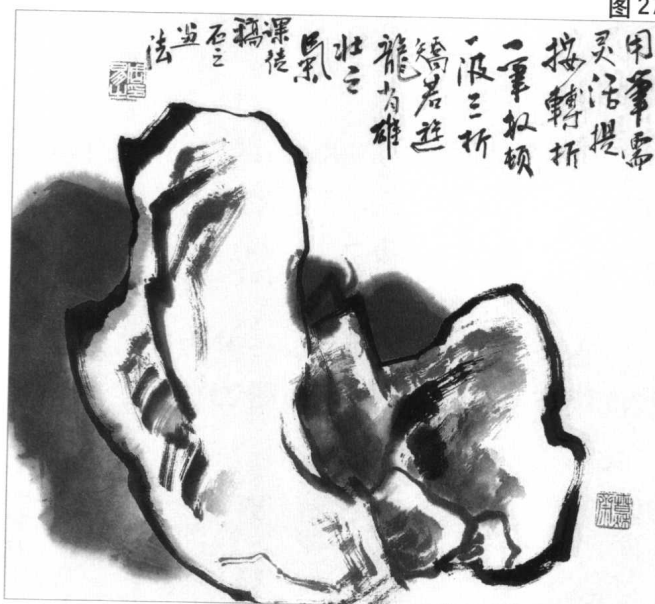 图 2
用筆需
灵活提
按轉折
一筆数顿
一波三折
矯若遊
龍
雄
壮之
課徒
稿
石之
法